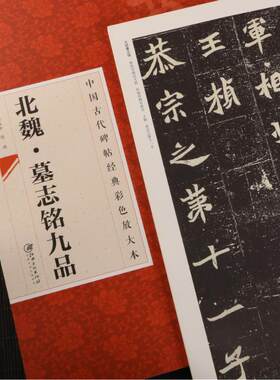 中国古代碑帖经典彩色放大本
北魏·墓志铭九品
軍相
王楨
恭宗之第十一子